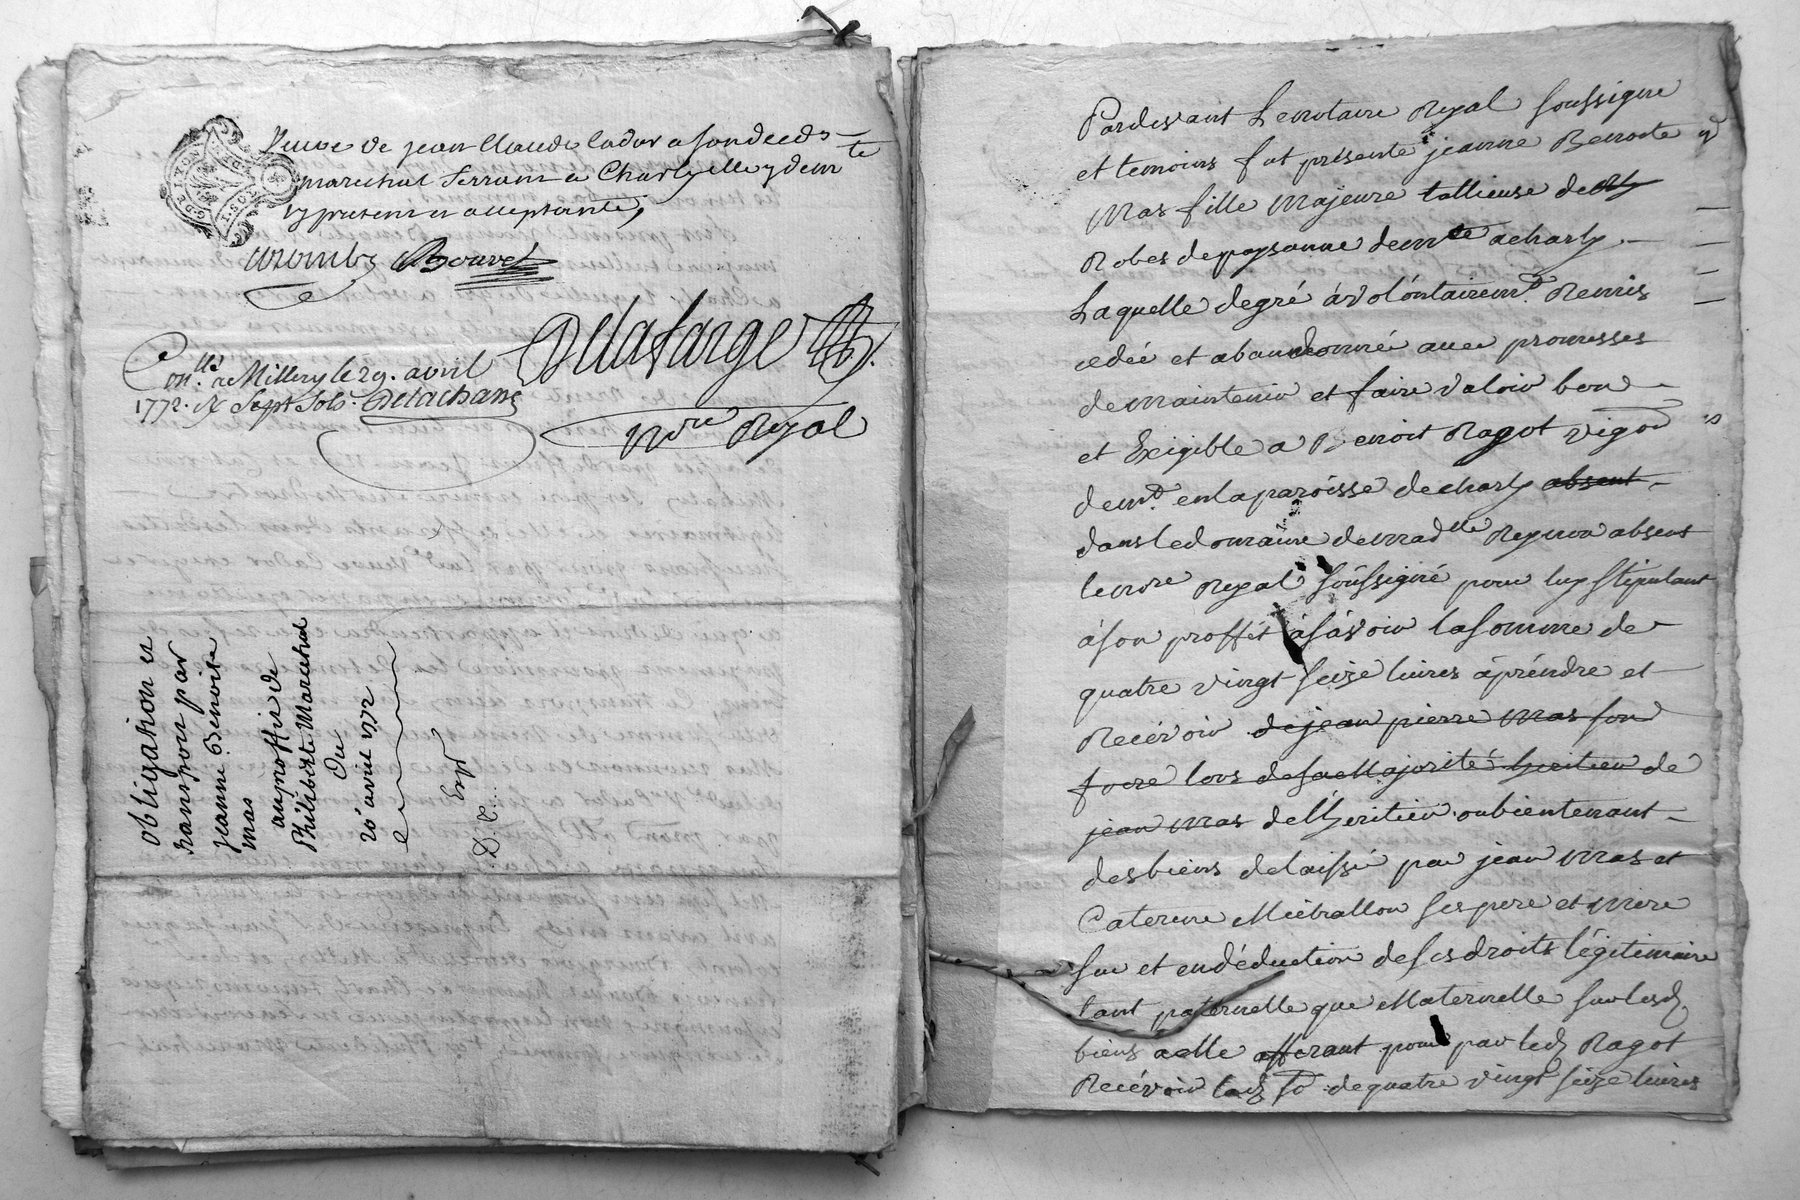 Veuve de jean Claude cadox a fondeeds
marechal ferrant a Charly elle y demte
cy presente et acceptante,
Bouvet
Delafarge
Con.lle a Millery le 29. avril
1772. Rx Sept sols. Delachans
Nore Royal
obligation et
transport par
jeanne Benoite
mas
au proffit de
Philiberte Marechal
Du
20 avril 1772
Exp
D. C.
Pardevant Le notaire Royal soussigné
et temoins fut présente jeanne Benoite
Mas fille Majeure tallieuse de
Robes de paysanne demte a charly
Laquelle de gré à volóntairemt Remis
cedée et abandonné avec promesses
de maintenir et faire valoir bon
et Exigible a Benoit Ragot vigon
demt en la paroisse de charly absent
dans le domaine de madlle Reynon absent
le nore Royal soussigné pour luy stipulant
à son proffit àsavoir la somme de
quatre vingt seize livres à préndre et
Recévoir de jean pierre mas son
frere lors de sa Majorité heritier de
jean mas de l'heritier ou bientenant
des biens delaissé par jean mas et
Caterine Miétrallon ses pere et mere
sur et en déduction de ses droits légitimaire
tant paternelle que Maternelle sur lesd
biens a elle afferant pour par led Ragot
Recévoir lad so de quatre vingt seize livres